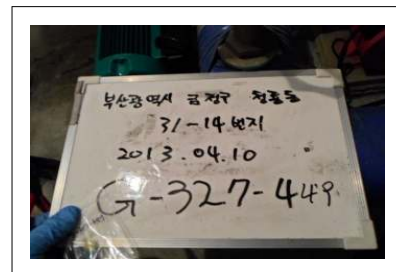 부산광역시 금정구 청룡동
31-14번지
2013.04.10
G-327-449